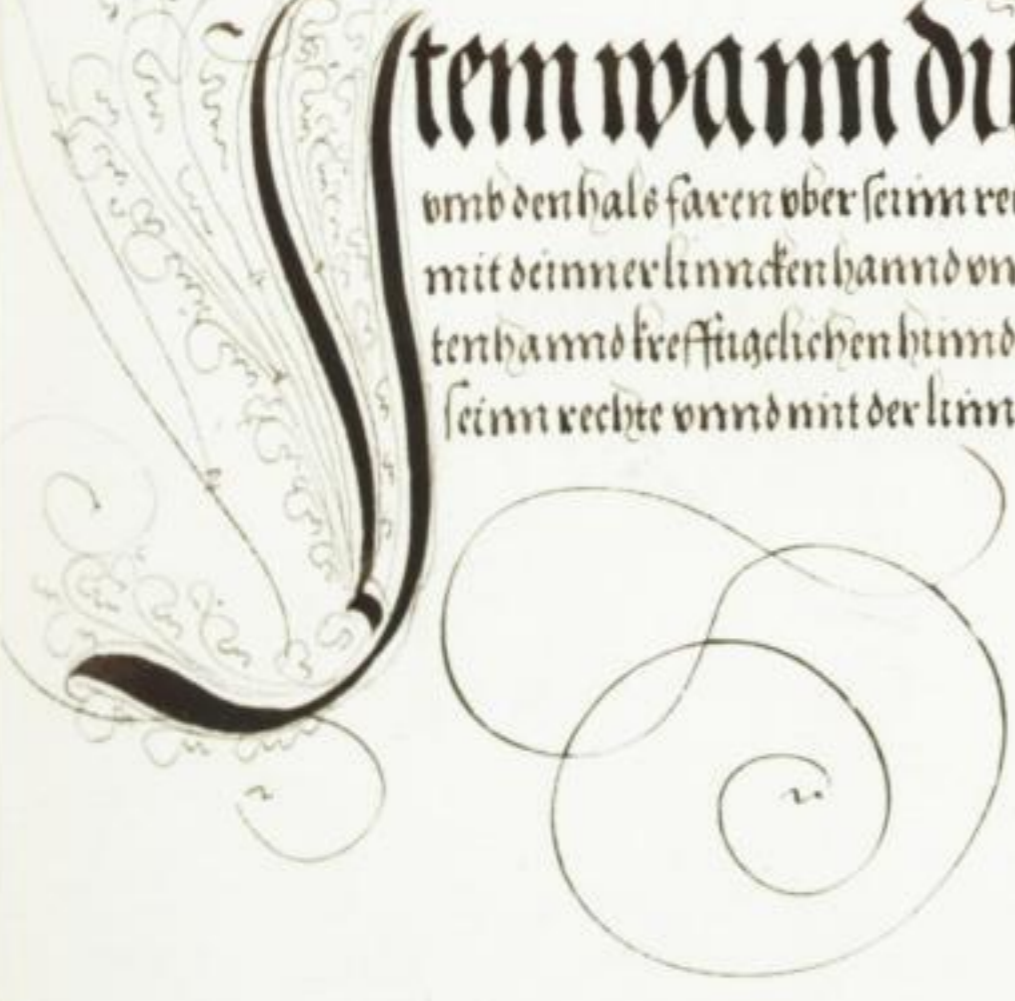 Item wann du
vmb den hals faren vber seinn re
mit deinner linncken hannd vn
ten hannd krefftigclichen hinnd
seinn rechte vnnd mit der linn